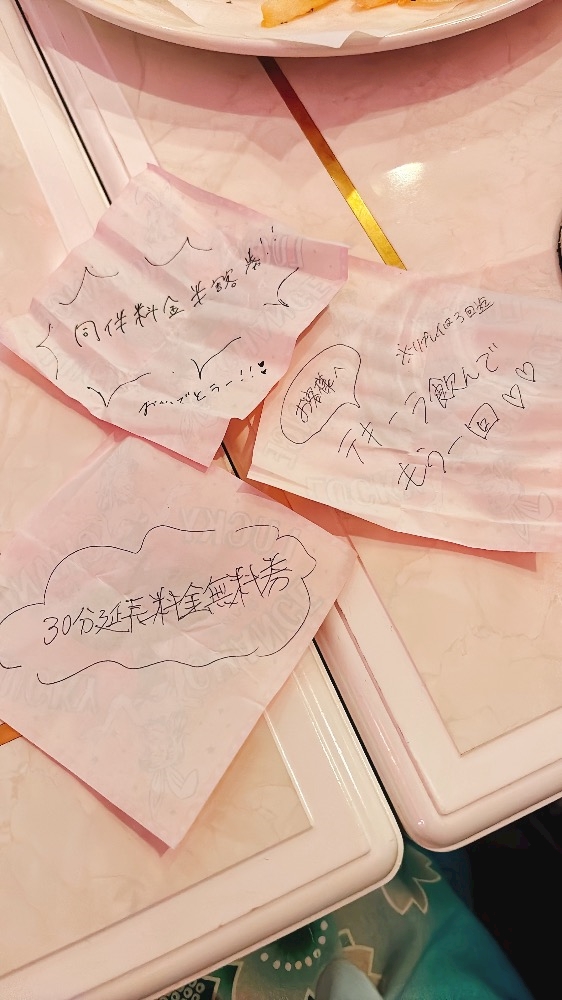 同伴料金半額券!!
おめでとう〜!!♥
※リプレイは3回迄
お客様へ
テキーラ飲んで
もう一回♡♡
30分延長料金無料券